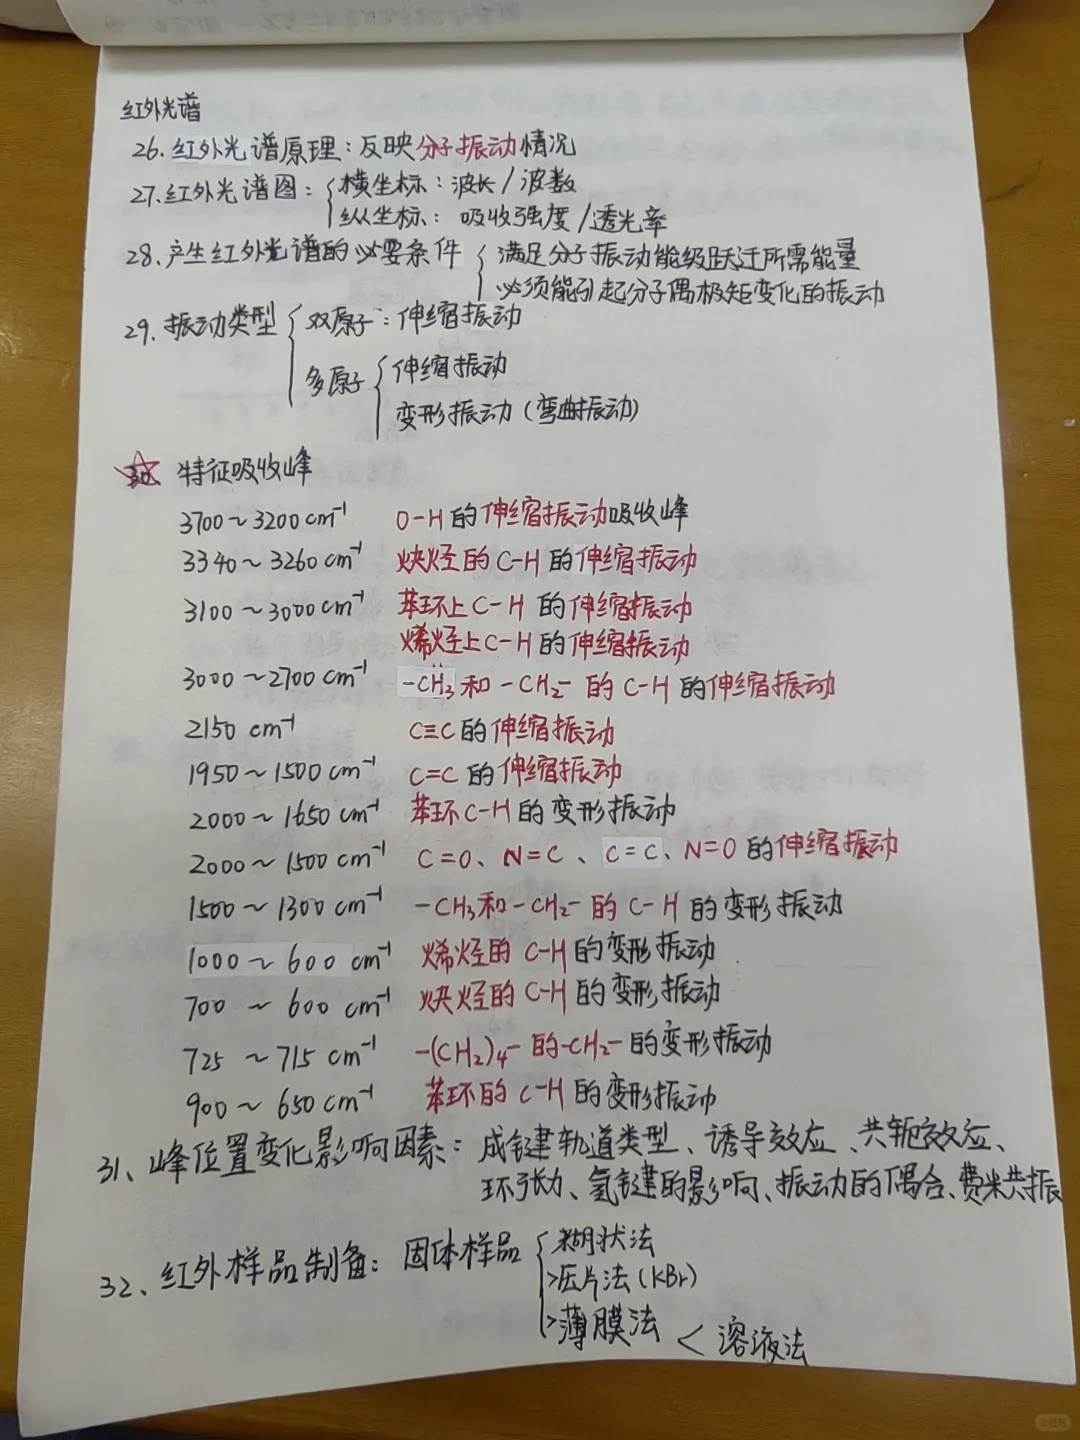 红外光谱
26.红外光谱原理：反映分子振动情况
27.红外光谱图：{横坐标：波长/波数
纵坐标：吸收强度/透光率
28.产生红外光谱的必要条件{满足分子振动能级跃迁所需能量
必须能引起分子偶极矩变化的振动
29.振动类型{双原子：伸缩振动
多原子{伸缩振动
变形振动(弯曲振动)
30 特征吸收峰
3700~3200cm⁻¹ O-H的伸缩振动吸收峰
3340~3260cm⁻¹ 炔烃的C-H的伸缩振动
3100~3000cm⁻¹ 苯环上C-H的伸缩振动
烯烃上C-H的伸缩振动
3000~2700cm⁻¹ -CH₃和-CH₂-的C-H的伸缩振动
2150cm⁻¹ C≡C的伸缩振动
1950~1500cm⁻¹ C=C的伸缩振动
2000~1650cm⁻¹ 苯环C-H的变形振动
2000~1500cm⁻¹ C=O、N=C、C=C、N=O的伸缩振动
1500~1300cm⁻¹ -CH₃和-CH₂-的C-H的变形振动
1000~600cm⁻¹ 烯烃的C-H的变形振动
700~600cm⁻¹ 炔烃的C-H的变形振动
725~715cm⁻¹ -(CH₂)₄-的-CH₂-的变形振动
900~650cm⁻¹ 苯环的C-H的变形振动
31、峰位置变化影响因素：成键轨道类型、诱导效应、共轭效应、
环张力、氢键的影响、振动的偶合、费米共振
32、红外样品制备：固体样品{糊状法
>压片法(KBr)
>薄膜法<溶液法
小红书